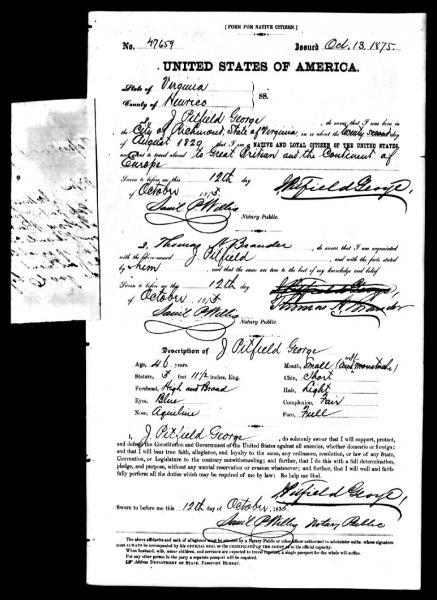 [FORM FOR NATIVE CITIZEN.]
No. 47659 Issued Oct. 13, 1875.
UNITED STATES OF AMERICA.
State of Virginia
County of Henrico } SS.
I, J. Pitfield George, do swear that I was born in
the City of Richmond, State of Virginia on or about the twenty second day
of August 1829 that I am a NATIVE AND LOYAL CITIZEN OF THE UNITED STATES,
and about to travel abroad to Great Britian and the Continent of
Europe
Sworn to before me this 12th day
of October 1875 J Pitfield George,
Saml P Willis
Notary Public.
I, Thomas A. Brander, do swear that I am acquainted
with the above-named J. Pitfield, and with the facts stated
by him, and that the same are true to the best of my knowledge and belief.
Sworn to before me this 12th day
of October 1875 Thomas A. Brander
Saml P Willis
Notary Public.
Description of J Pitfield George
Age, 46 years. Mouth, Small (with moustache)
Stature, 5 feet 11 1/2 inches, Eng. Chin, Short
Forehead, High and Broad Hair, Light
Eyes, Blue Complexion, Fair
Nose, Aquiline Face, Full
I, J. Pitfield George, do solemnly swear that I will support, protect,
and defend the Constitution and Government of the United States against all enemies, whether domestic or foreign;
and that I will bear true faith, allegiance, and loyalty to the same, any ordinance, resolution, or law of any State,
Convention, or Legislature to the contrary notwithstanding; and further, that I do this with a full determination,
pledge, and purpose, without any mental reservation or evasion whatsoever; and further, that I will well and faithfully
perform all the duties which may be required of me by law: So help me God.
J Pitfield George,
Sworn to before me this 12th day of October, 1875
Saml P Willis Notary Public
The above affidavits and oath of allegiance must be attested by a Notary Public or other officer authorized to administer oaths; whose signature
must always be accompanied by his OFFICIAL SEAL or the CERTIFICATE OF THE COURT as to his official capacity.
When husband, wife, minor children, and servants are expected to travel together, a single passport for the whole will suffice.
For any other person in the party a separate passport will be required.
Address DEPARTMENT OF STATE, PASSPORT BUREAU.